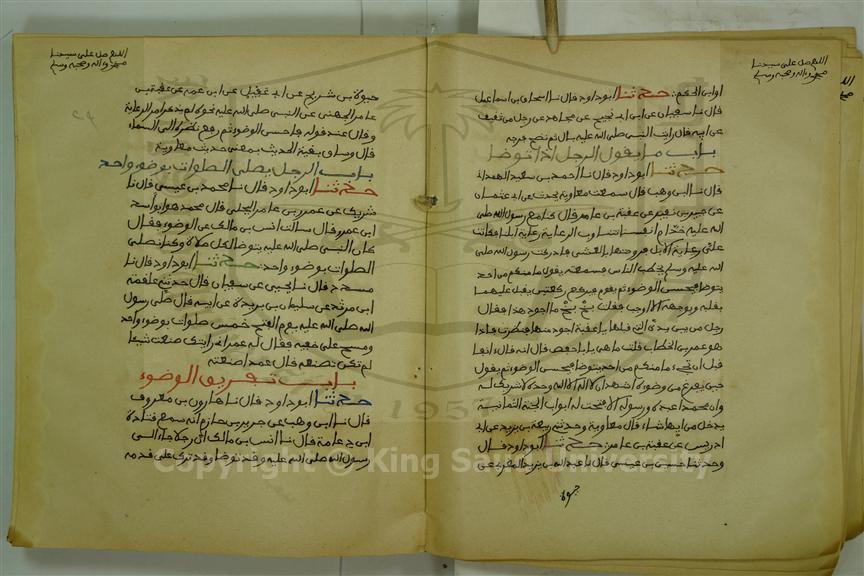 اللهم صل على سيدنا
محمد واله وصحبه وسلم
او ابى الحكم: حدثنا ابو داود قال نا اسحاق بن اسماعيل
قال نا سفيان عن ابن ابى نجيح عن مجاهد عن رجل من ثقيف
عن ابيه قال رايت النبى صلى الله عليه بال ثم نضح فرجه
باب ما يقول الرجل اذا توضا
حدثنا ابو داود قال نا احمد بن سعيد الهمدانى
قال نا ابن وهب قال سمعت معاوية يحدث عن ابى عثمان
عن جبير بن نفير عن عقبة بن عامر قال كنا مع رسول الله صلى
الله عليه خدام انفسنا نتناوب الرعاية رعاية ابلنا فكانت
على رعاية الابل فروحتها بالعشى فادركت رسول الله صلى
الله عليه وسلم يخطب الناس فسمعته يقول ما منكم من احد
يتوضا فيحسن الوضوء ثم يقوم فيركع ركعتين يقبل عليهما
بقلبه وبوجهه الا اوجب فقلت بخ بخ ما اجود هذا فقال
رجل من بين يدى التى قبلها يا عقبة اجود منها فنظرت فاذا
هو عمر بن الخطاب قلت ما هى يا با حفص قال انه قال: انفا
قبل ان تجىء ما منكم من احد يتوضا فيحسن الوضوء ثم يقول
حين يفرغ من وضوءه اشهد ان لا اله الا الله وحده لا شريك له
وان محمدا عبده ورسوله الا فتحت له ابواب الجنة الثمانية
يدخل من ايها شاء: قال معاوية وحدثنى ربيعة بن يزيد عن ابى
ادريس عن عقبة بن عامر: حدثنا ابو داود قال
وحدثنا حسين بن عيسى قال نا عبد الله بن يزيد المقرى عن
حيوة
اللهم صل على سيدنا
محمد واله وصحبه وسلم
حيوة بن شريح عن ابى عقيل عن ابن عمه عن عقبة بن
عامر الجهنى عن النبى صلى الله عليه نحوه لم يذكر امر الرعاية
وقال عند قوله فاحسن الوضوء ثم رفع نظره الى السماء
قال وساق بقية الحديث بمعنى حديث معاوية
باب الرجل يصلى الصلوات بوضوء واحد
حدثنا ابو داود قال نا محمد بن عيسى قال نا
شريك عن عمرو بن عامر البجلى قال محمد هو ابو اسد
ابن عمرو قال سالت انس بن مالك عن الوضوء فقال
كان النبى صلى الله عليه يتوضا لكل صلاة وكنا نصلى
الصلوات بوضوء واحد: حدثنا ابو داود قال نا
مسدد قال نا يحيى عن سفيان قال حدثنى علقمة
ابن مرثد عن سليمان بن بريدة عن ابيه قال صلى رسول
الله صلى الله عليه يوم الفتح خمس صلوات بوضوء واحد
ومسح على خفيه فقال له عمر انى رايتك صنعت شيئا
لم تكن تصنعه قال عمدا صنعته
باب تفريق الوضوء
حدثنا ابو داود قال نا هارون بن معروف
قال نا ابن وهب عن جرير بن حازم انه سمع قتادة
ابن دعامة قال نا انس بن مالك ان رجلا جاء الى
رسول الله صلى الله عليه وقد توضا وقد ترك على قدمه
1957
Copyright © King Saud University